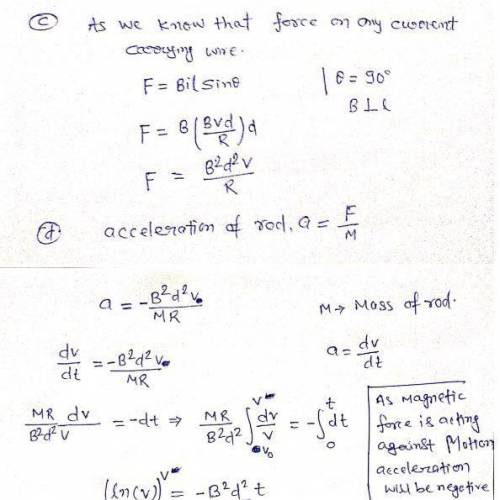 (c) As we know that force on any current
carrying wire.
F = Bil sinθ | θ = 90°
B ⊥ l
F = B(Bvd/R)d
F = B²d²v/R
(d) acceleration of rod, a = F/M
a = -B²d²v/MR M → Mass of rod.
dv/dt = -B²d²v/MR a = dv/dt
MR dv/B²d²v = -dt ⇒ MR/B²d² ∫v₀^v dv/v = -∫0^t dt
As magnetic
force is acting
against Motion
acceleration
will be negetive
(ln(v))^v = -B²d²t